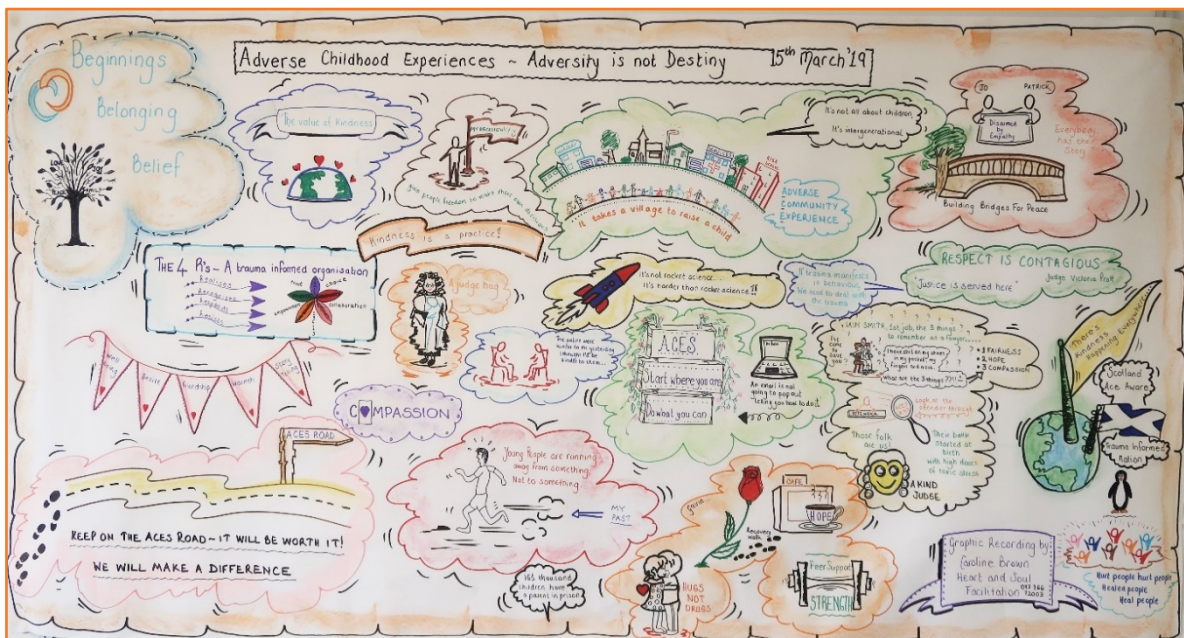 Beginnings
Belonging
Belief
Adverse Childhood Experiences ~ Adversity is not Destiny 15th March '19
The value of Kindness
Kindness is a practice!
It takes a village to raise a child
ADVERSE
COMMUNITY
EXPERIENCE
It's not all about children
It's intergenerational
JO PATRICK
Disarmed
by
Empathy
Everybody
has their
Story
Building Bridges For Peace
THE 4 R's ~ A trauma informed organisation
Realises
Recognises
Responds
Resists
trust
choice
collaboration
A judge hug?
It's not rocket science...
It's harder than rocket science!!
If trauma manifests
in behaviour,
We need to deal with
the trauma
RESPECT IS CONTAGIOUS
Judge Victoria Pratt
"Justice is served here"
Well being
Desire
Friendship
Warmth
Story
COMPASSION
ACES
Start where you are
Do what you can
An email is not
going to pop out
telling you how to do it
IAIN SMITH. 1st job, the 3 things
to remember as a lawyer.....
1 FAIRNESS
2 HOPE
3 COMPASSION
What are the 3 things??!!
Look at the
offender through
Those folk
are us!
Their debt
started at
birth
with high doses
of toxic stress
A KIND
JUDGE
There's
Kindness
Happening Everywhere
Scotland
Ace Aware
Trauma Informed
Nation
ACES ROAD
KEEP ON THE ACES ROAD ~ IT WILL BE WORTH IT!
WE WILL MAKE A DIFFERENCE
Young People are running
away from something..
Not to something...
MY
PAST
thousand
children have
a parent in prison
CAFE
HOPE
Recovery
walk
HUGS
NOT
DRUGS
Peer Support
STRENGTH
Graphic Recording by:
Caroline Brown
Heart and Soul
Facilitation
Hurt people hurt people
Healed people
Heal people